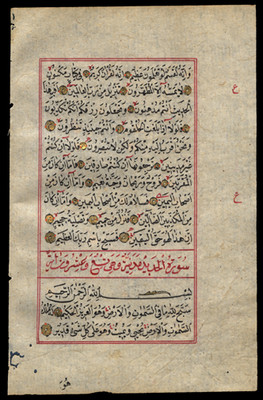 وانه لقسم لو تعلمون عظيم انه لقرآن كريم في كتاب مكنون
لا يمسه الا المطهرون تنزيل من رب العالمين افبهذا
ع
الحديث انتم مدهنون وتجعلون رزقكم انكم تكذبون
فلولا اذا بلغت الحلقوم وانتم حينئذ تنظرون
ونحن اقرب اليه منكم ولكن لا تبصرون فلولا ان كنتم
غير مدينين ترجعونها ان كنتم صادقين فاما ان كان من
المقربين فروح وريحان وجنت نعيم واما ان كان من
ع
اصحاب اليمين فسلام لك من اصحاب اليمين واما ان كان
من المكذبين الضالين فنزل من حميم وتصلية جحيم
ان هذا لهو حق اليقين فسبح باسم ربك العظيم
سورة الحديد مدنية وهي تسع وعشرون آية
بسم الله الرحمن الرحيم
سبح لله ما في السموات والارض وهو العزيز الحكيم له ملك
السموات والارض يحيي ويميت وهو على كل شئ قدير
هو